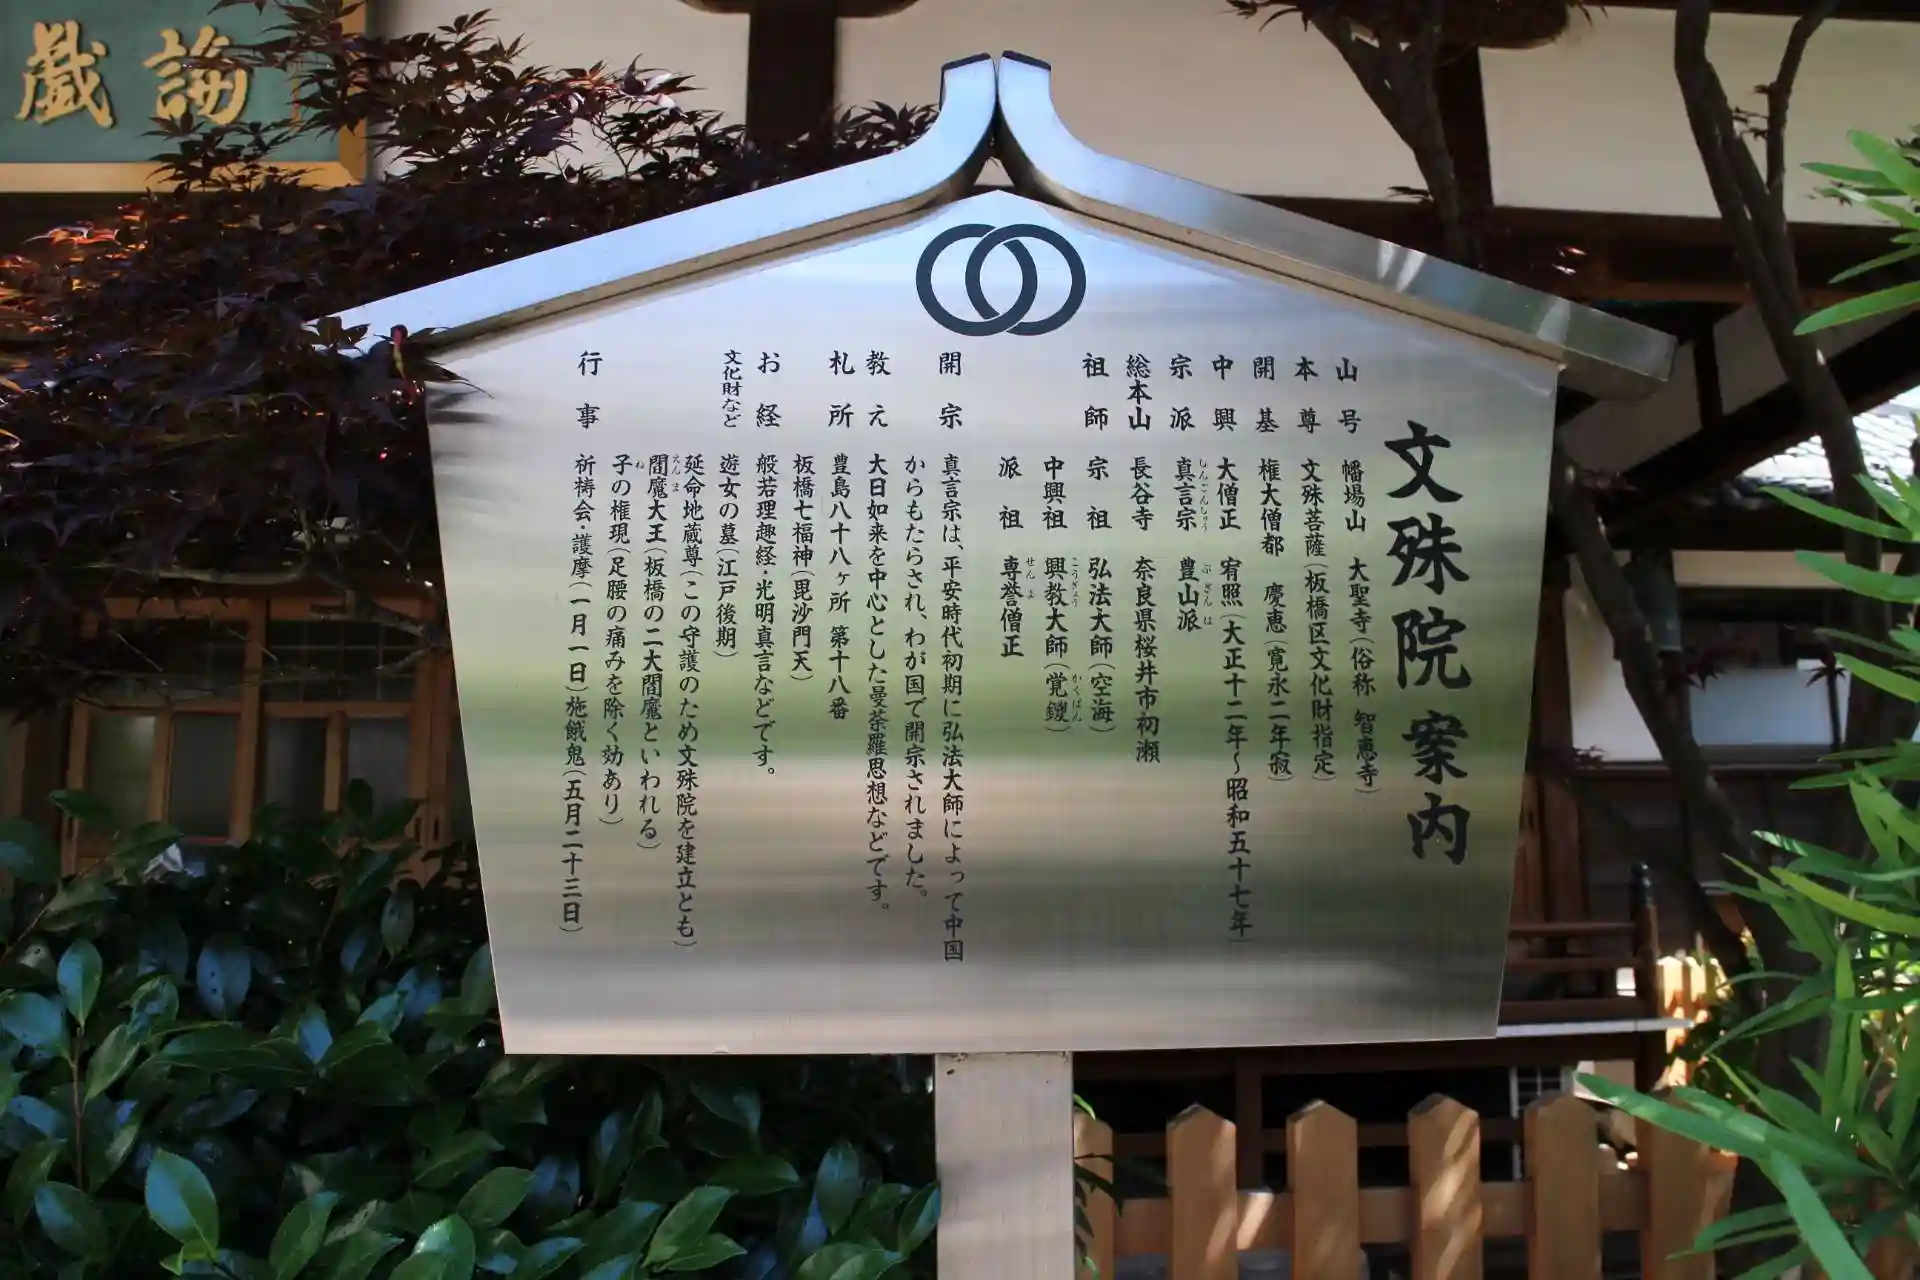 文殊院案内
山号 幡場山 大聖寺(俗称 智恵寺)
本尊 文殊菩薩(板橋区文化財指定)
開基 権大僧都 慶恵(寛永二年寂)
中興 大僧正 宥照(大正十二年〜昭和五十七年)
宗派 真言宗 豊山派
しんごんしゅう ぶざんは
総本山 長谷寺 奈良県桜井市初瀬
祖師 宗祖 弘法大師(空海)
中興祖 興教大師(覚鑁)
こうぎょう かくばん
派祖 専誉僧正
せんよ
開宗 真言宗は、平安時代初期に弘法大師によって中国
からもたらされ、わが国で開宗されました。
教え 大日如来を中心とした曼荼羅思想などです。
札所 豊島八十八ヶ所 第十八番
板橋七福神(毘沙門天)
お経 般若理趣経・光明真言などです。
文化財など 遊女の墓(江戸後期)
延命地蔵尊(この守護のため文殊院を建立とも)
閻魔大王(板橋の二大閻魔といわれる)
えんま
子の権現(足腰の痛みを除く効あり)
ね
行事 祈祷会・護摩(一月一日)施餓鬼(五月二十三日)